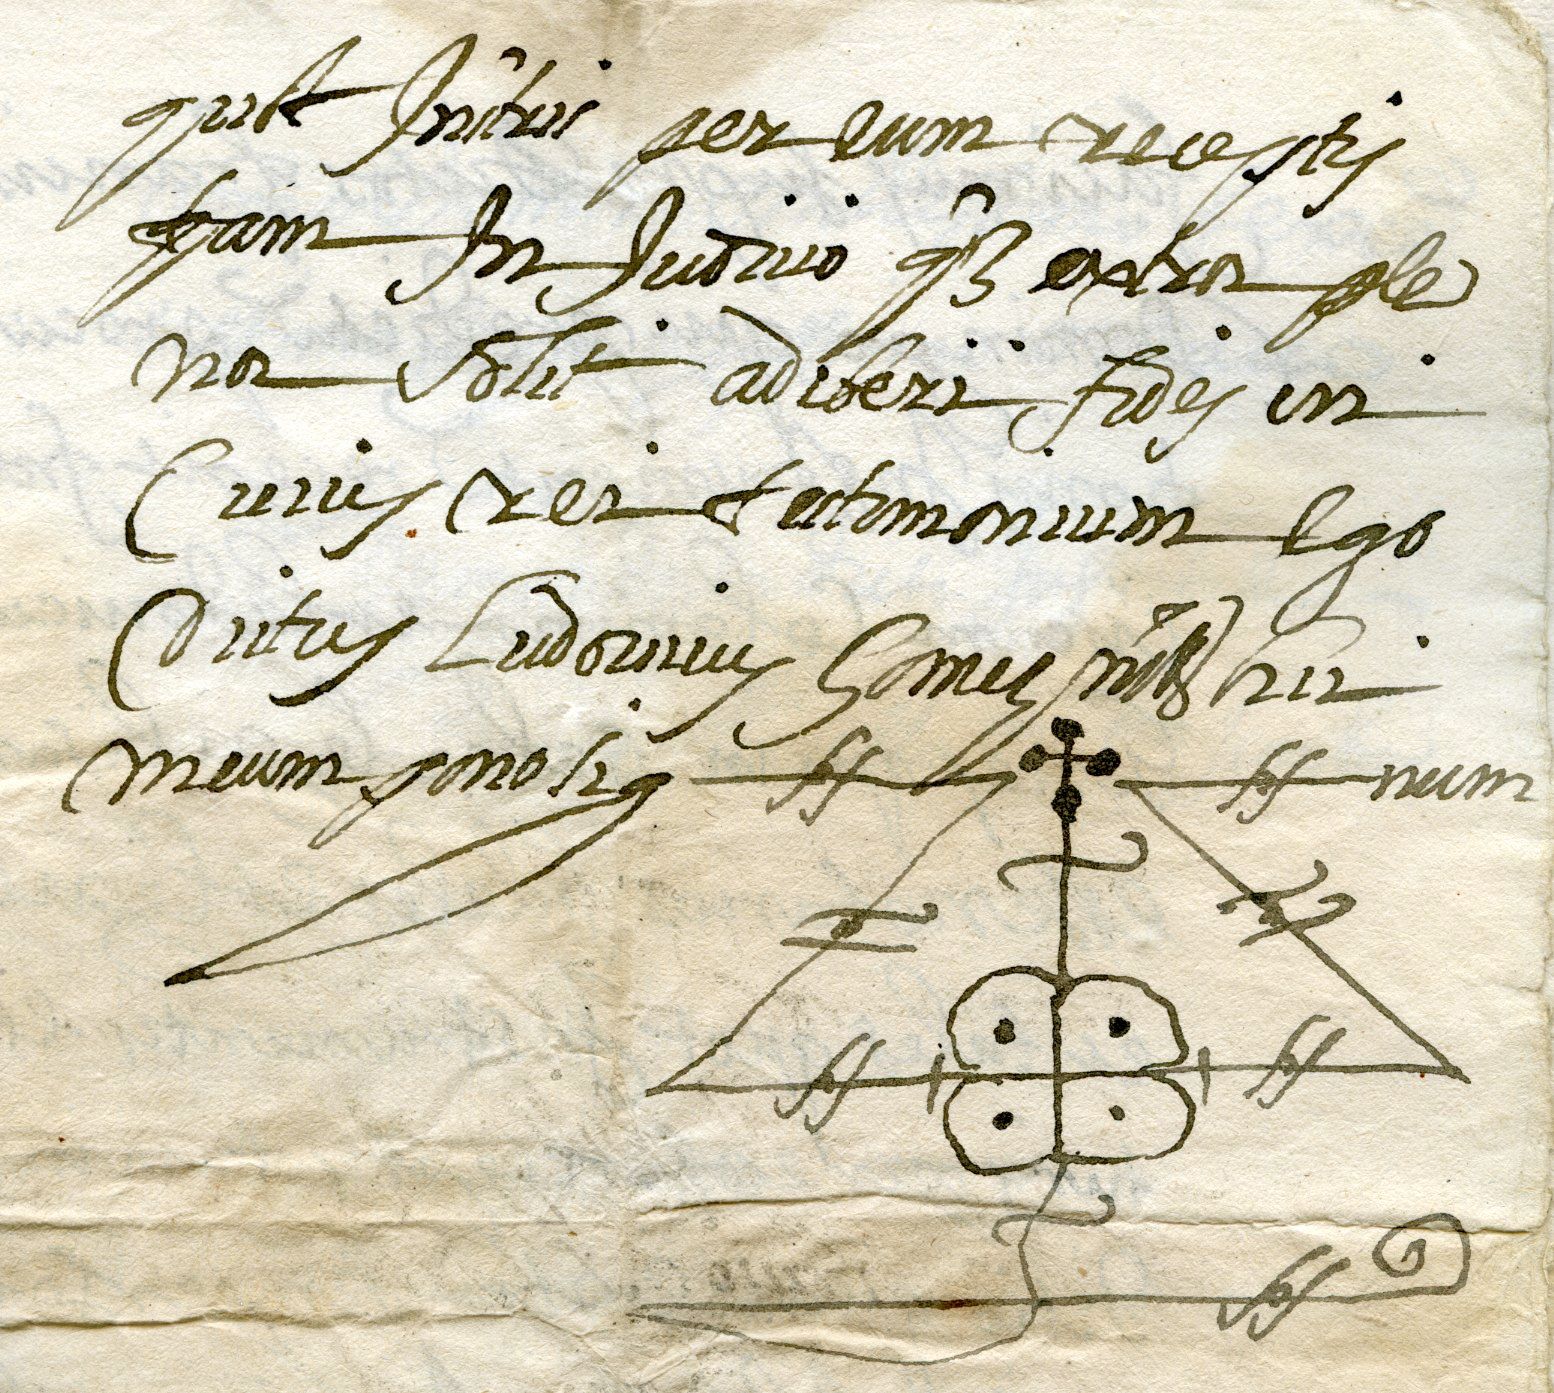 quibus Instris per eum receptis
tam In Judicio qȝ extra ple
na solit adiberi fides in
Cuius rei testimonium Ego
Dictus Ludovicus Gomes hic
meum pono sig num